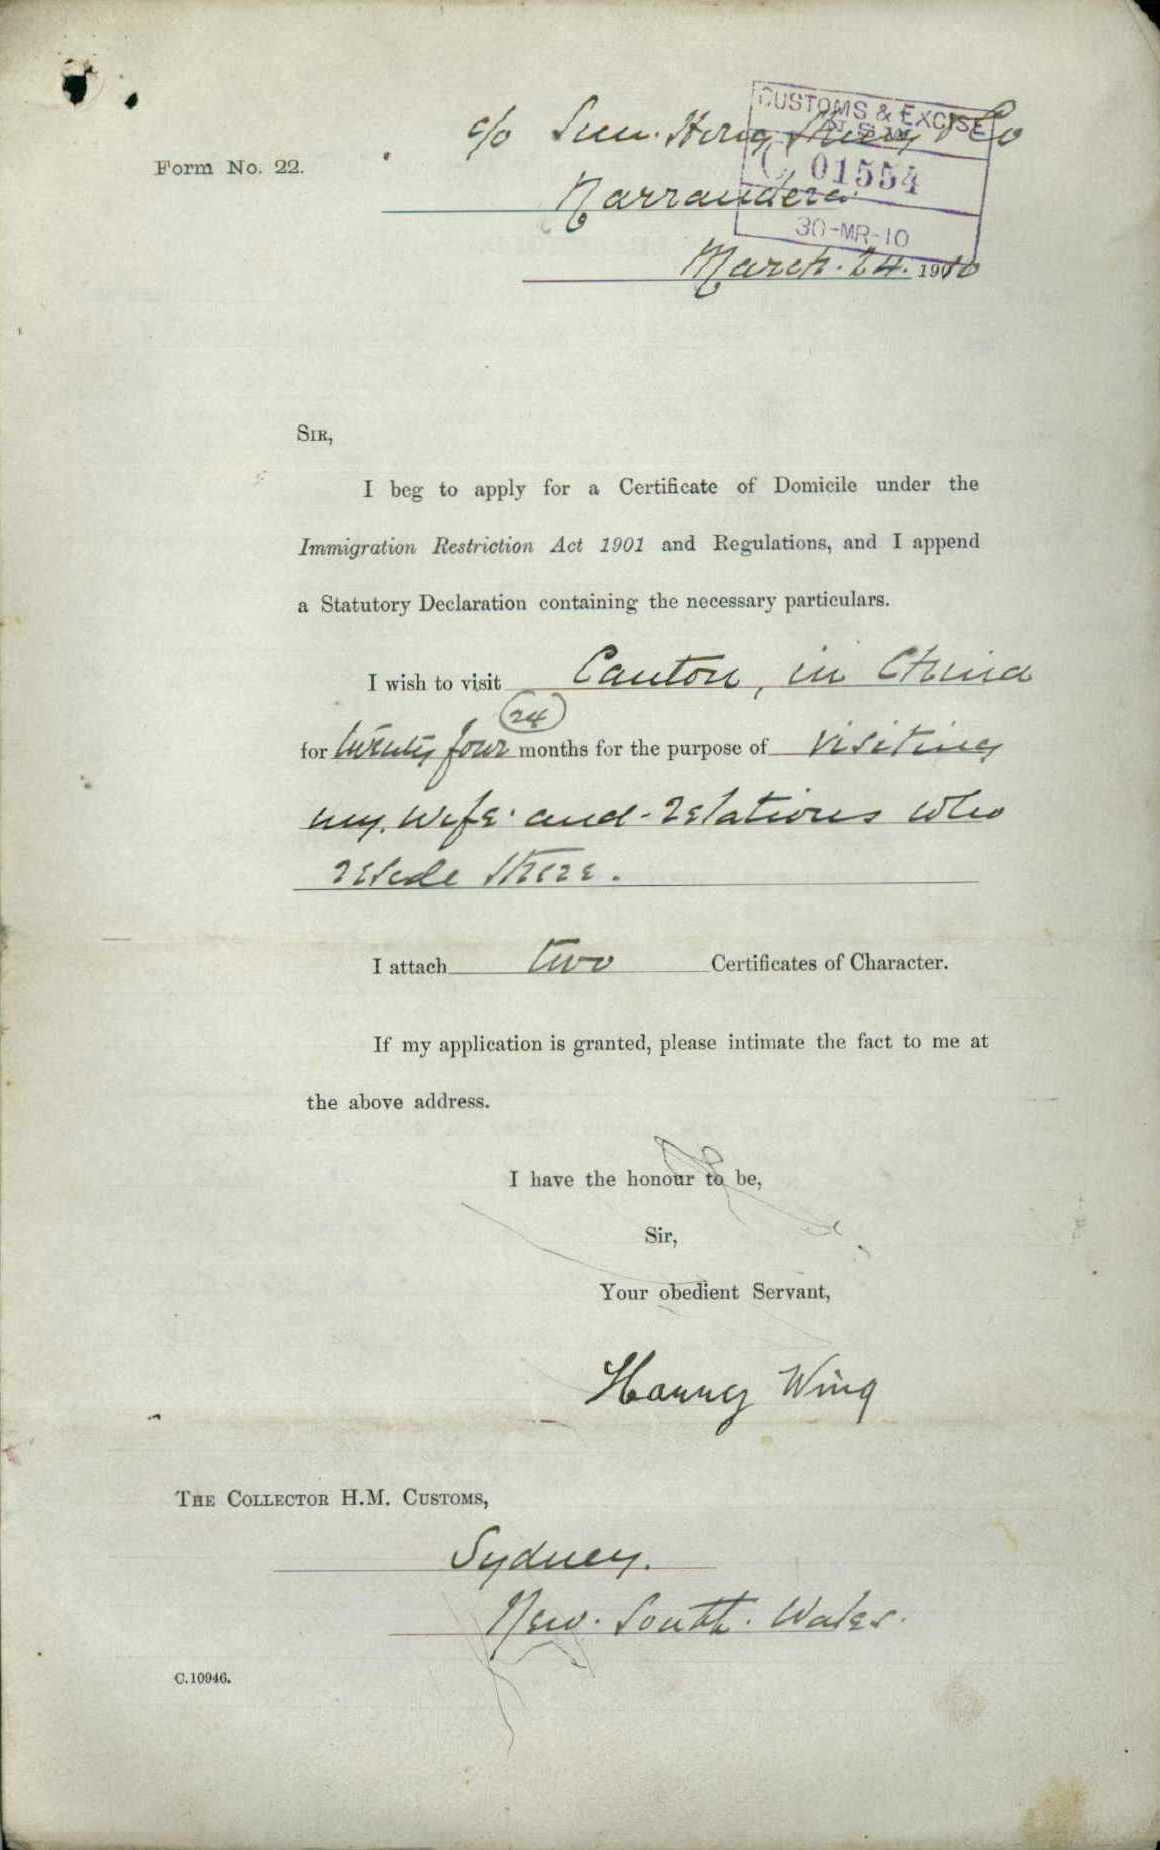 c/o Sun. Hong & Co
CUSTOMS & EXCISE
C 01554
30-MR-10
Form No. 22.
Narrandera
March. 24. 1910
SIR,
I beg to apply for a Certificate of Domicile under the
Immigration Restriction Act 1901 and Regulations, and I append
a Statutory Declaration containing the necessary particulars.
I wish to visit Canton, in China
(24)
for twenty four months for the purpose of visiting
my. wife. and - relations who
reside there.
I attach two Certificates of Character.
If my application is granted, please intimate the fact to me at
the above address.
I have the honour to be,
Sir,
Your obedient Servant,
Harry Wing
THE COLLECTOR H.M. CUSTOMS,
Sydney.
New. South. Wales.
C.10946.